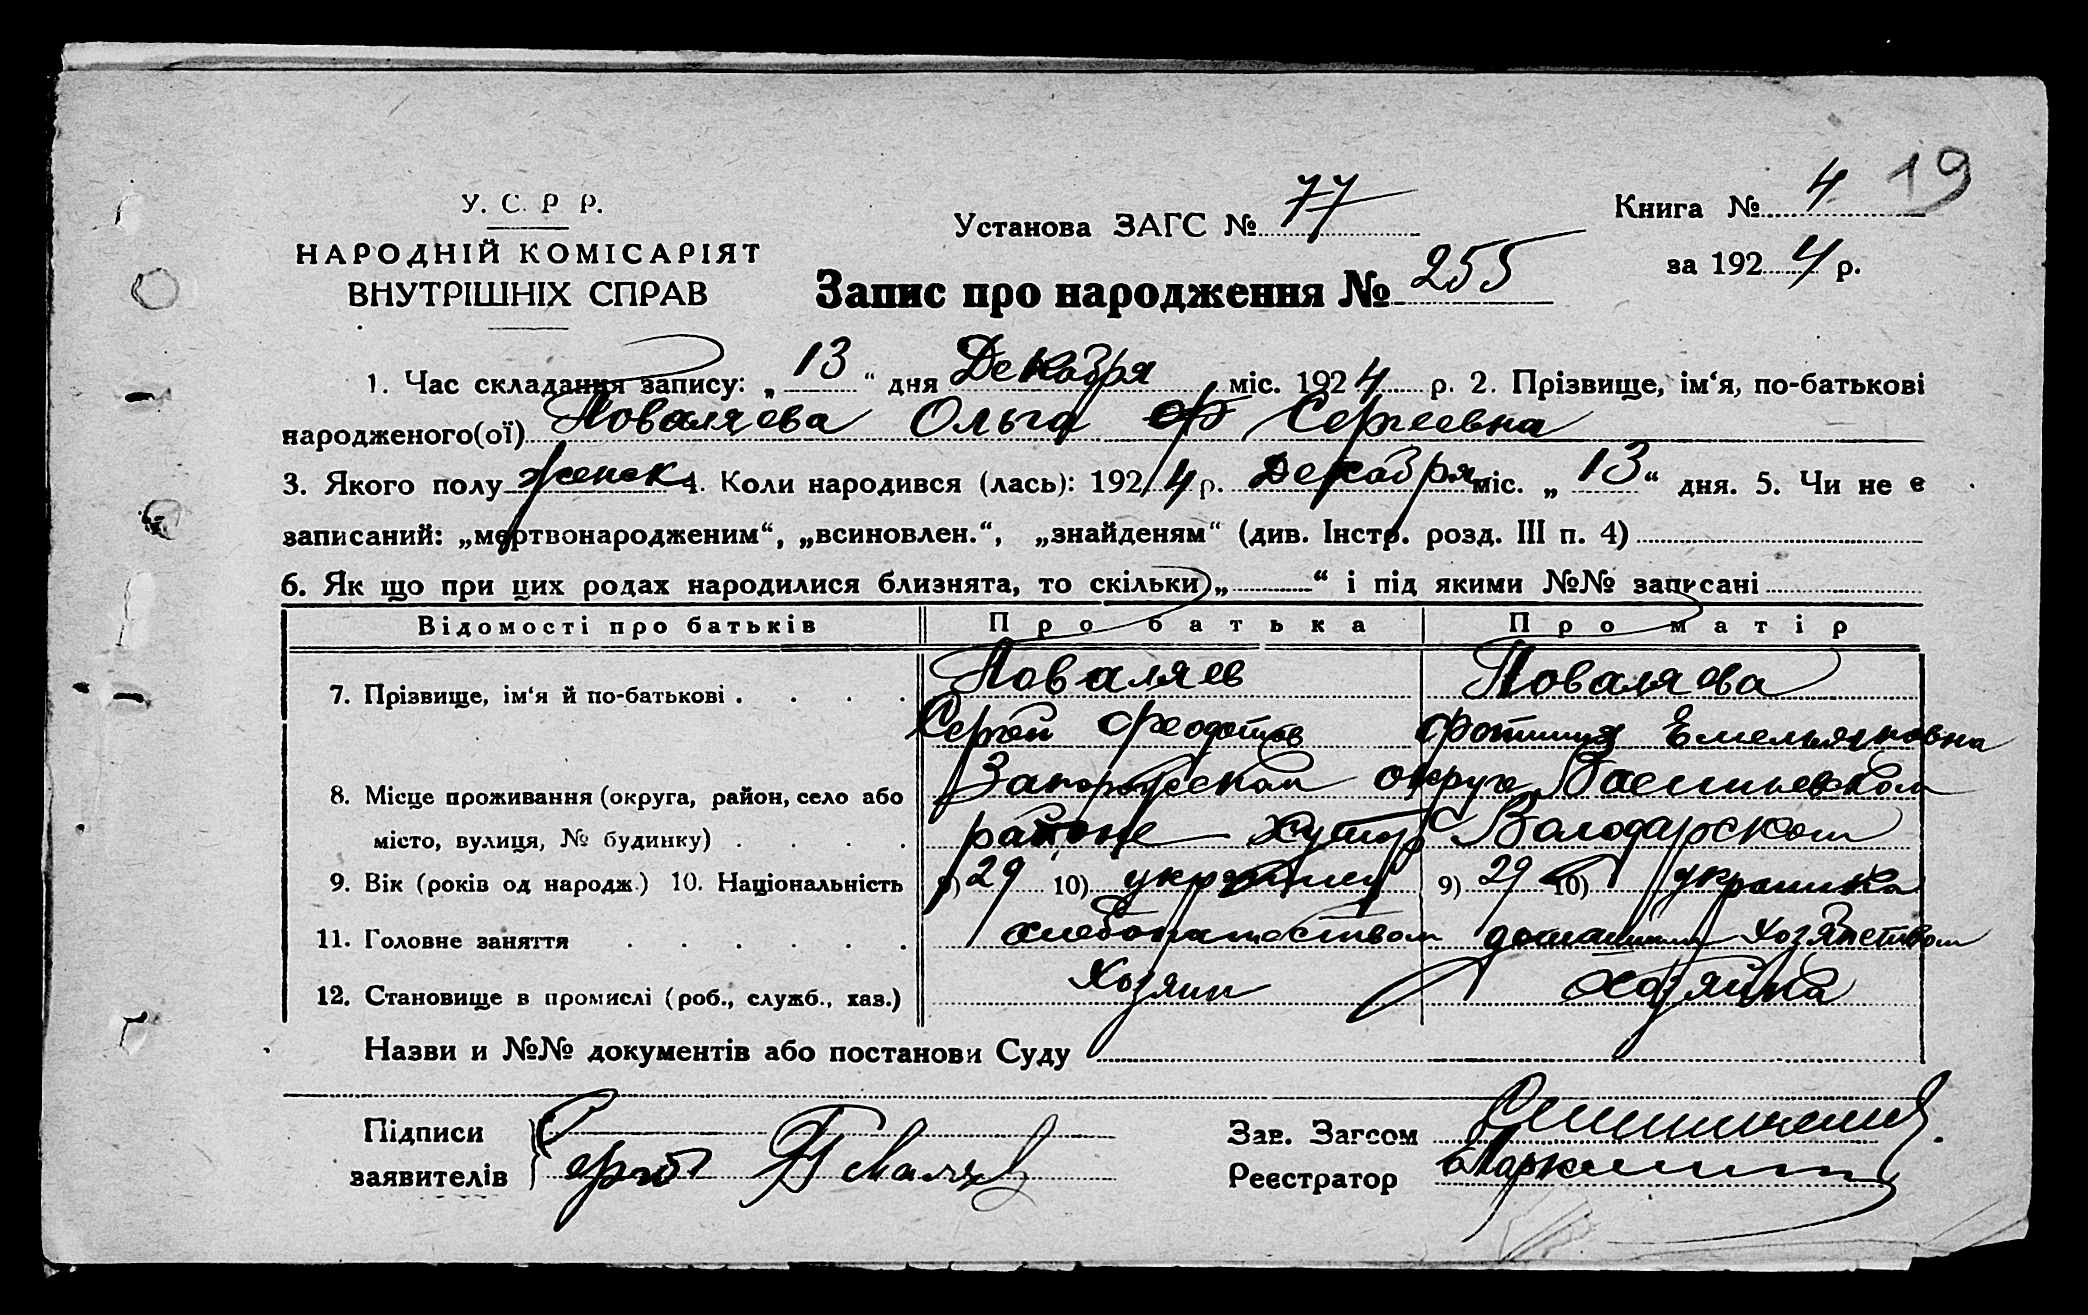 19
У. С. Р. Р.
НАРОДНІЙ КОМІСАРІЯТ
ВНУТРІШНІХ СПРАВ
Установа ЗАГС № 77
Книга № 4
за 1924 р.
Запис про народження № 255
1. Час складання запису: „13“ дня Декабря міс. 1924 р. 2. Прізвище, ім‘я, по-батькові
народженого(ої) Поваляева Ольга Сергеевна
3. Якого полу женск 4. Коли народився (лась): 1924 р. Декабря міс. „13“ дня. 5. Чи не є
записаний: „мертвонародженим“, „всиновлен.“, „знайденям“ (див. Інстр. розд. III п. 4)
6. Як що при цих родах народилися близнята, то скільки „ “ і під якими №№ записані
Відомості про батьків Про батька Про матір
7. Прізвище, ім‘я й по-батькові . . . . Поваляев Поваляева
Сергей Феодотов Фотиния Емельяновна
8. Місце проживання (округа, район, село або Запорожском округе Васильевском
місто, вулиця, № будинку) . . . . районе хутор Володарском
9. Вік (років од народж.) 10. Національність 9) 29 10) украинец 9) 29 10) украинка
11. Головне заняття . . . . . . хлебопашеством домашним хозяйством
12. Становище в промислі (роб., служб., хаз.) Хозяин хозяйка
Назви и №№ документів або постанови Суду
Підписи
заявителів Сергей Поваляев
Зав. Загсом
Реєстратор